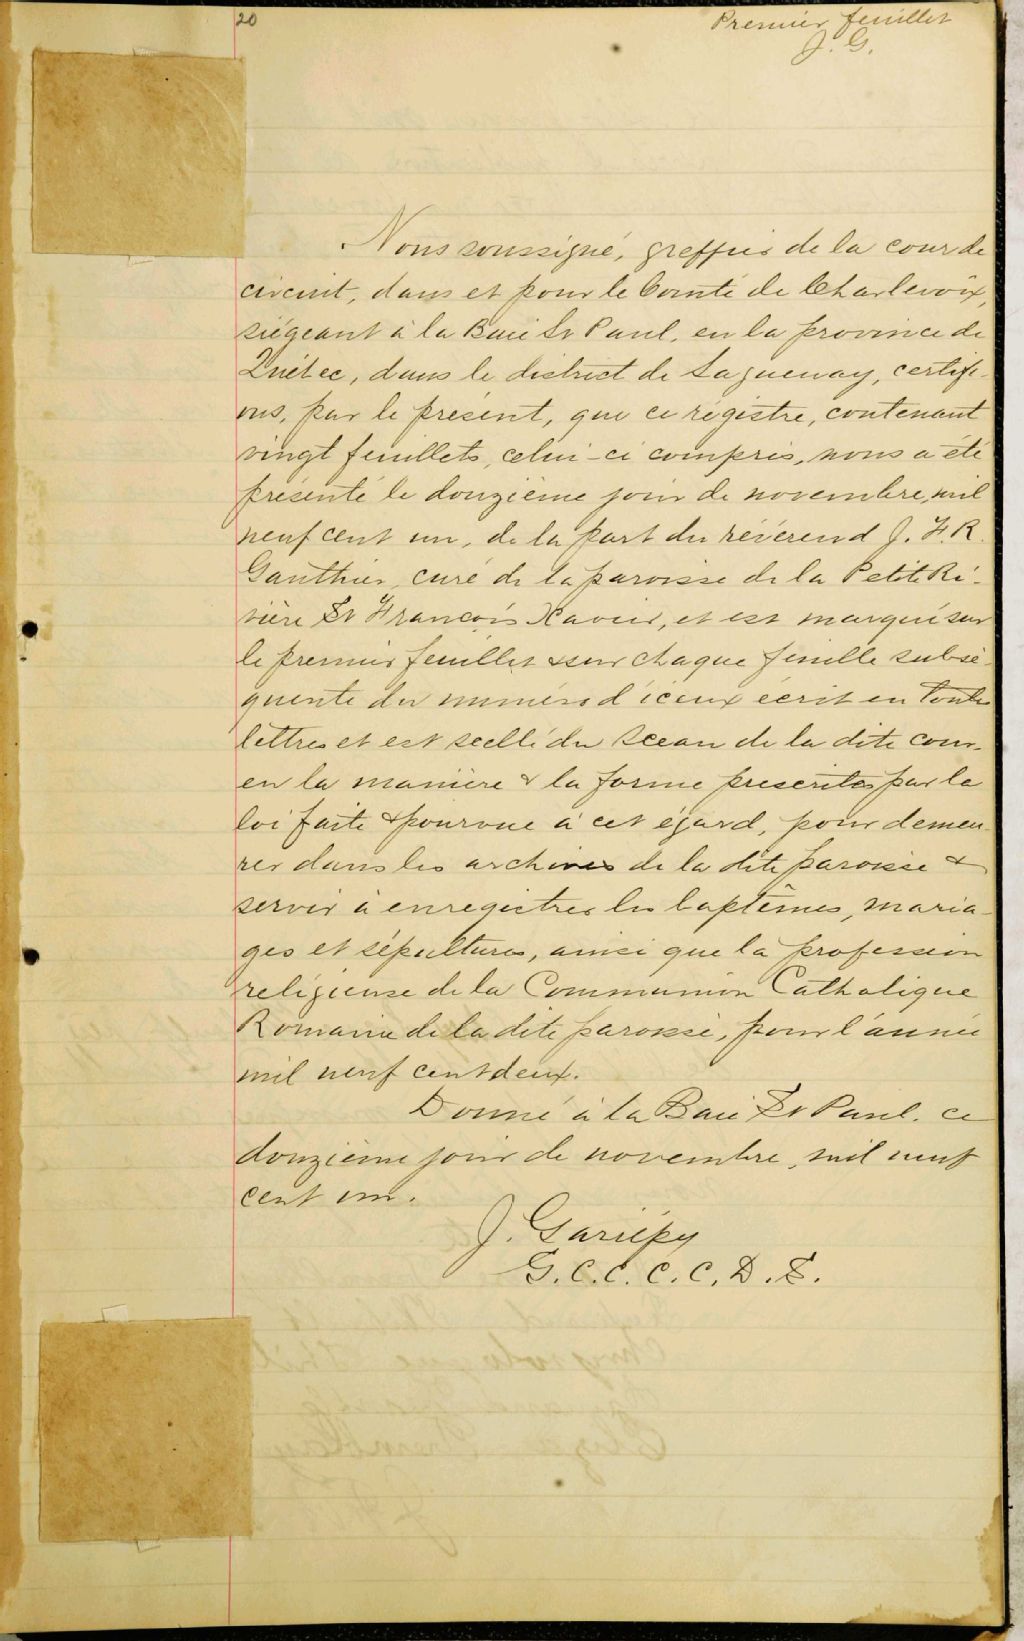 20
Premier feuillet
J. G.
Nous soussigné, greffier de la cour de
circuit, dans et pour le Comté de Charlevoix,
siégeant à la Baie St Paul, en la province de
Québec, dans le district de Saguenay, certifi-
ons, par le présent, que ce régistre, contenant
vingt feuillets, celui-ci compris, nous a été
présenté le douzième jour de novembre, mil
neuf cent un, de la part du révérend J. F. R.
Gauthier, curé de la paroisse de la Petite Ri-
vière St François Xavier, et est marqué sur
le premier feuillet & sur chaque feuille subsé-
quente du numéro d'iceux écrit en toutes
lettres et est scellé du Sceau de la dite cour
en la manière & la forme prescrites par la
loi faite & pourvue à cet égard, pour demeu-
rer dans les archives de la dite paroisse &
servir à enregistrer les baptêmes, maria-
ges et sépultures, ainsi que la profession
religieuse de la Communion Catholique
Romaine de la dite paroisse, pour l'année
mil neuf cent deux.
Donné à la Baie St Paul, ce
douzième jour de novembre, mil neuf
cent un.
J. Gariépy
G. C. C. C. C. D. S.